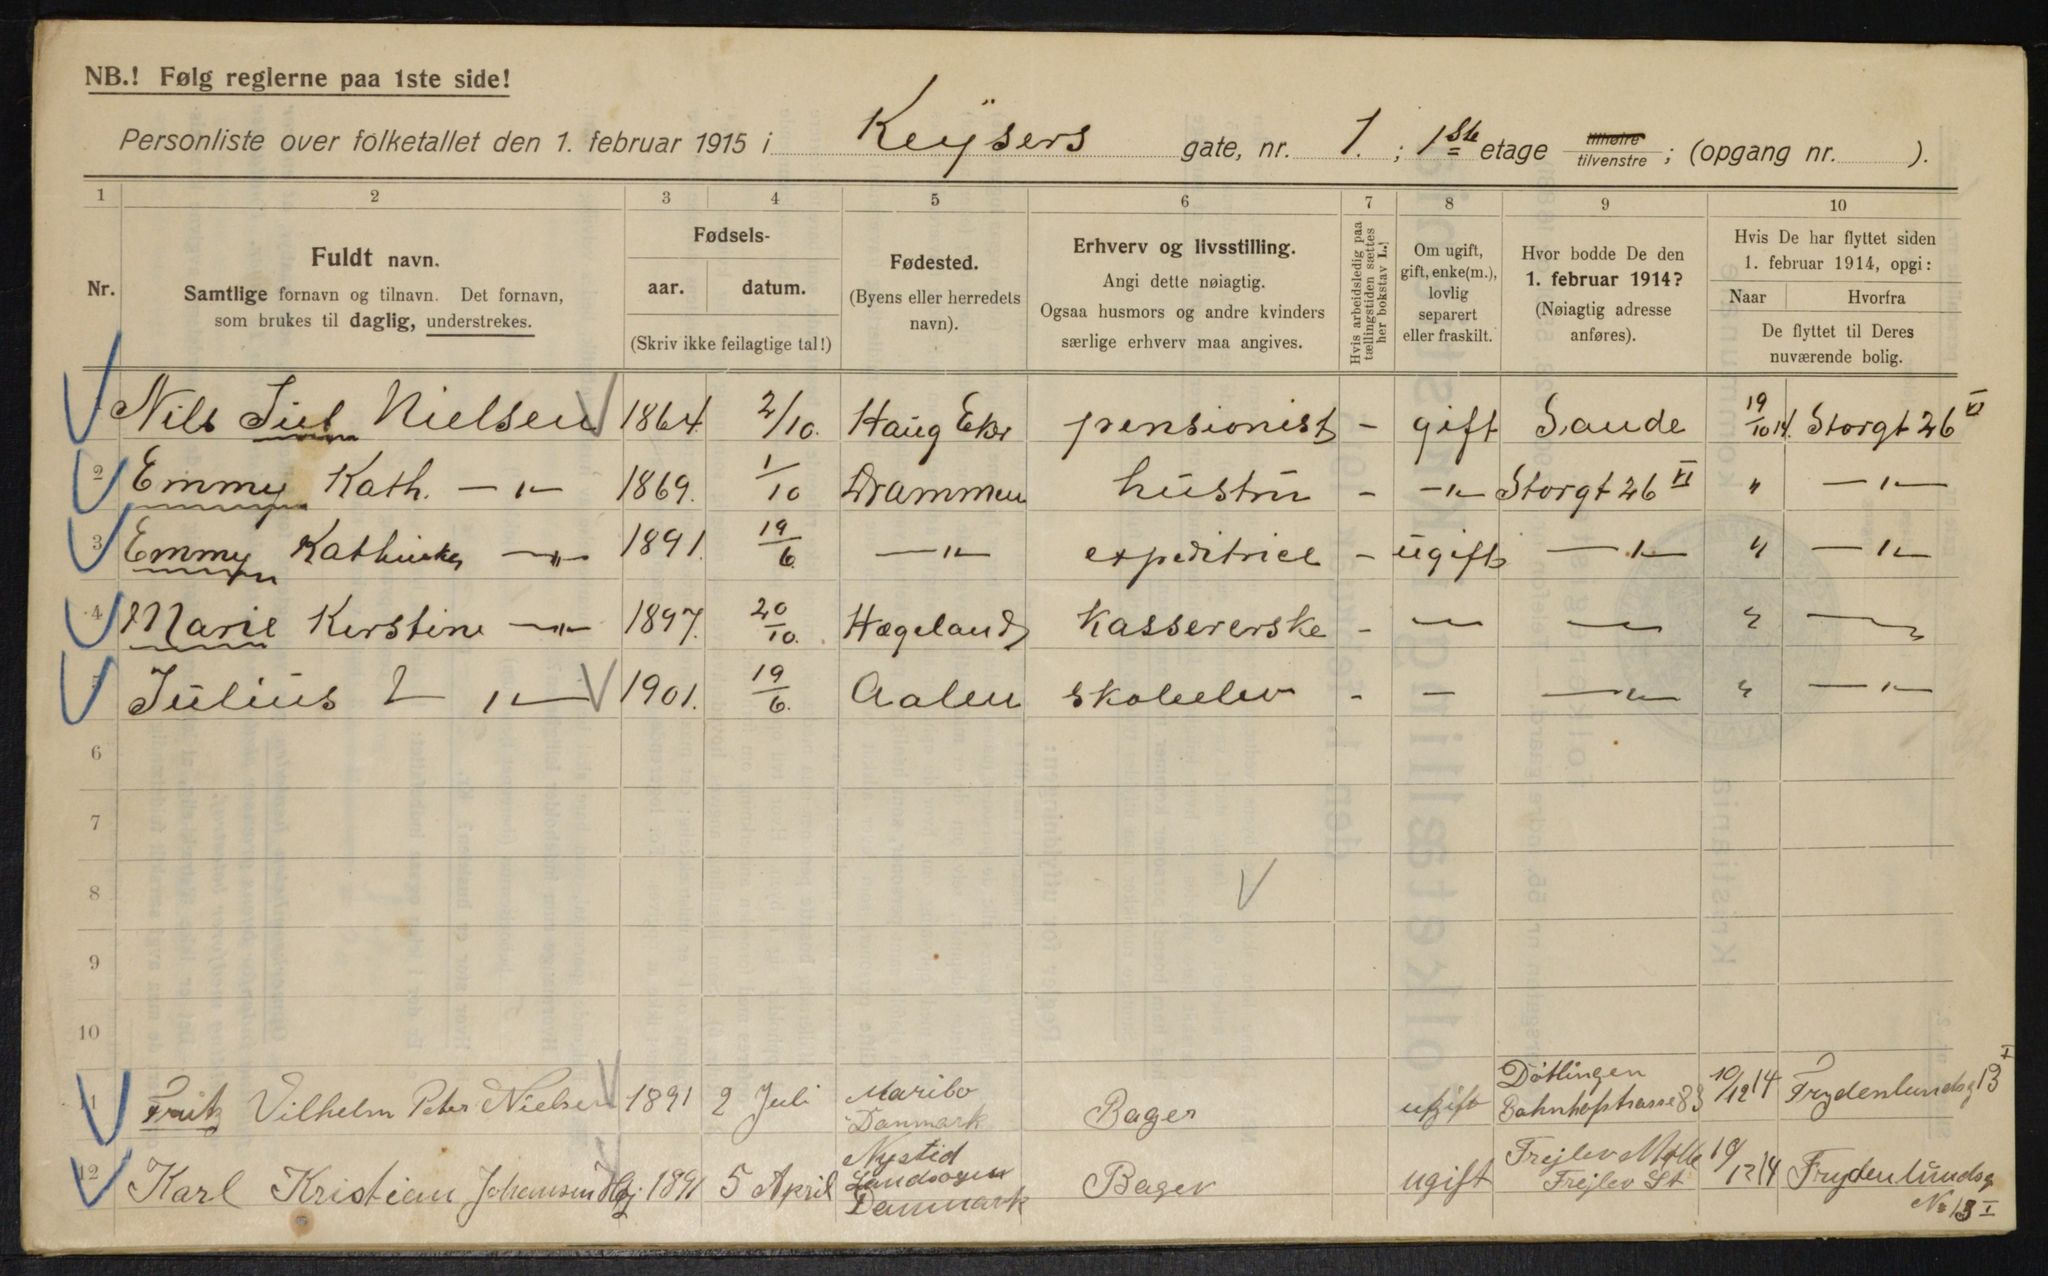 NB.! Følg reglerne paa 1ste side!
Personliste over folketallet den 1. februar 1915 i Keÿsers gate, nr. 1. ; 1ste etage tilhøire tilvenstre ; (opgang nr. ).
1 2 3 4 5 6 7 8 9 10
Nr.
Fuldt navn.
Samtlige fornavn og tilnavn. Det fornavn,
som brukes til daglig, understrekes.
Fødsels-
aar. datum.
(Skriv ikke feilagtige tal!)
Fødested.
(Byens eller herredets
navn).
Erhverv og livsstilling.
Angi dette nøiagtig.
Ogsaa husmors og andre kvinders
særlige erhverv maa angives.
Hvis arbeidsledig paa
tællingstiden sættes
her bokstav L.!
Om ugift,
gift, enke(m.),
lovlig
separert
eller fraskilt.
Hvor bodde De den
1. februar 1914?
(Nøiagtig adresse
anføres).
Hvis De har flyttet siden
1. februar 1914, opgi:
Naar Hvorfra
De flyttet til Deres
nuværende bolig.
Nils Juel Nielsen 1864. 2/10. Haug Eker pensionist - gift Sande 19/10 14. Storgt 26 VI
2 Emmy Kath. — " — 1869. 1/10 Drammen hustru - — " — Storgt 26 VI " — " —
3 Emmy Kathinka — " — 1891. 19/6. — " — expeditrice - ugift — " — " — " —
4 Marie Kirstine — " — 1897. 20/10. Hægeland Kassererske - — — " —
5 Julius — " — 1901. 19/6. Aalen skoleelev - - — " — " — " —
6
7
8
9
10
11 Fritz Vilhelm Peter Nielsen 1891 2 Juli Maribo Danmark Bager ugift Dötlingen Bahnhofstrasse 83 10/12 14 Frydenlundsg 13 I
12 Karl Kristian Johansen 1891 5 April Nysted Landsogn Danmark Bager ugift Frejlev Mølle Frejlev St 10/12 14 Frydenlundsg No 13 I